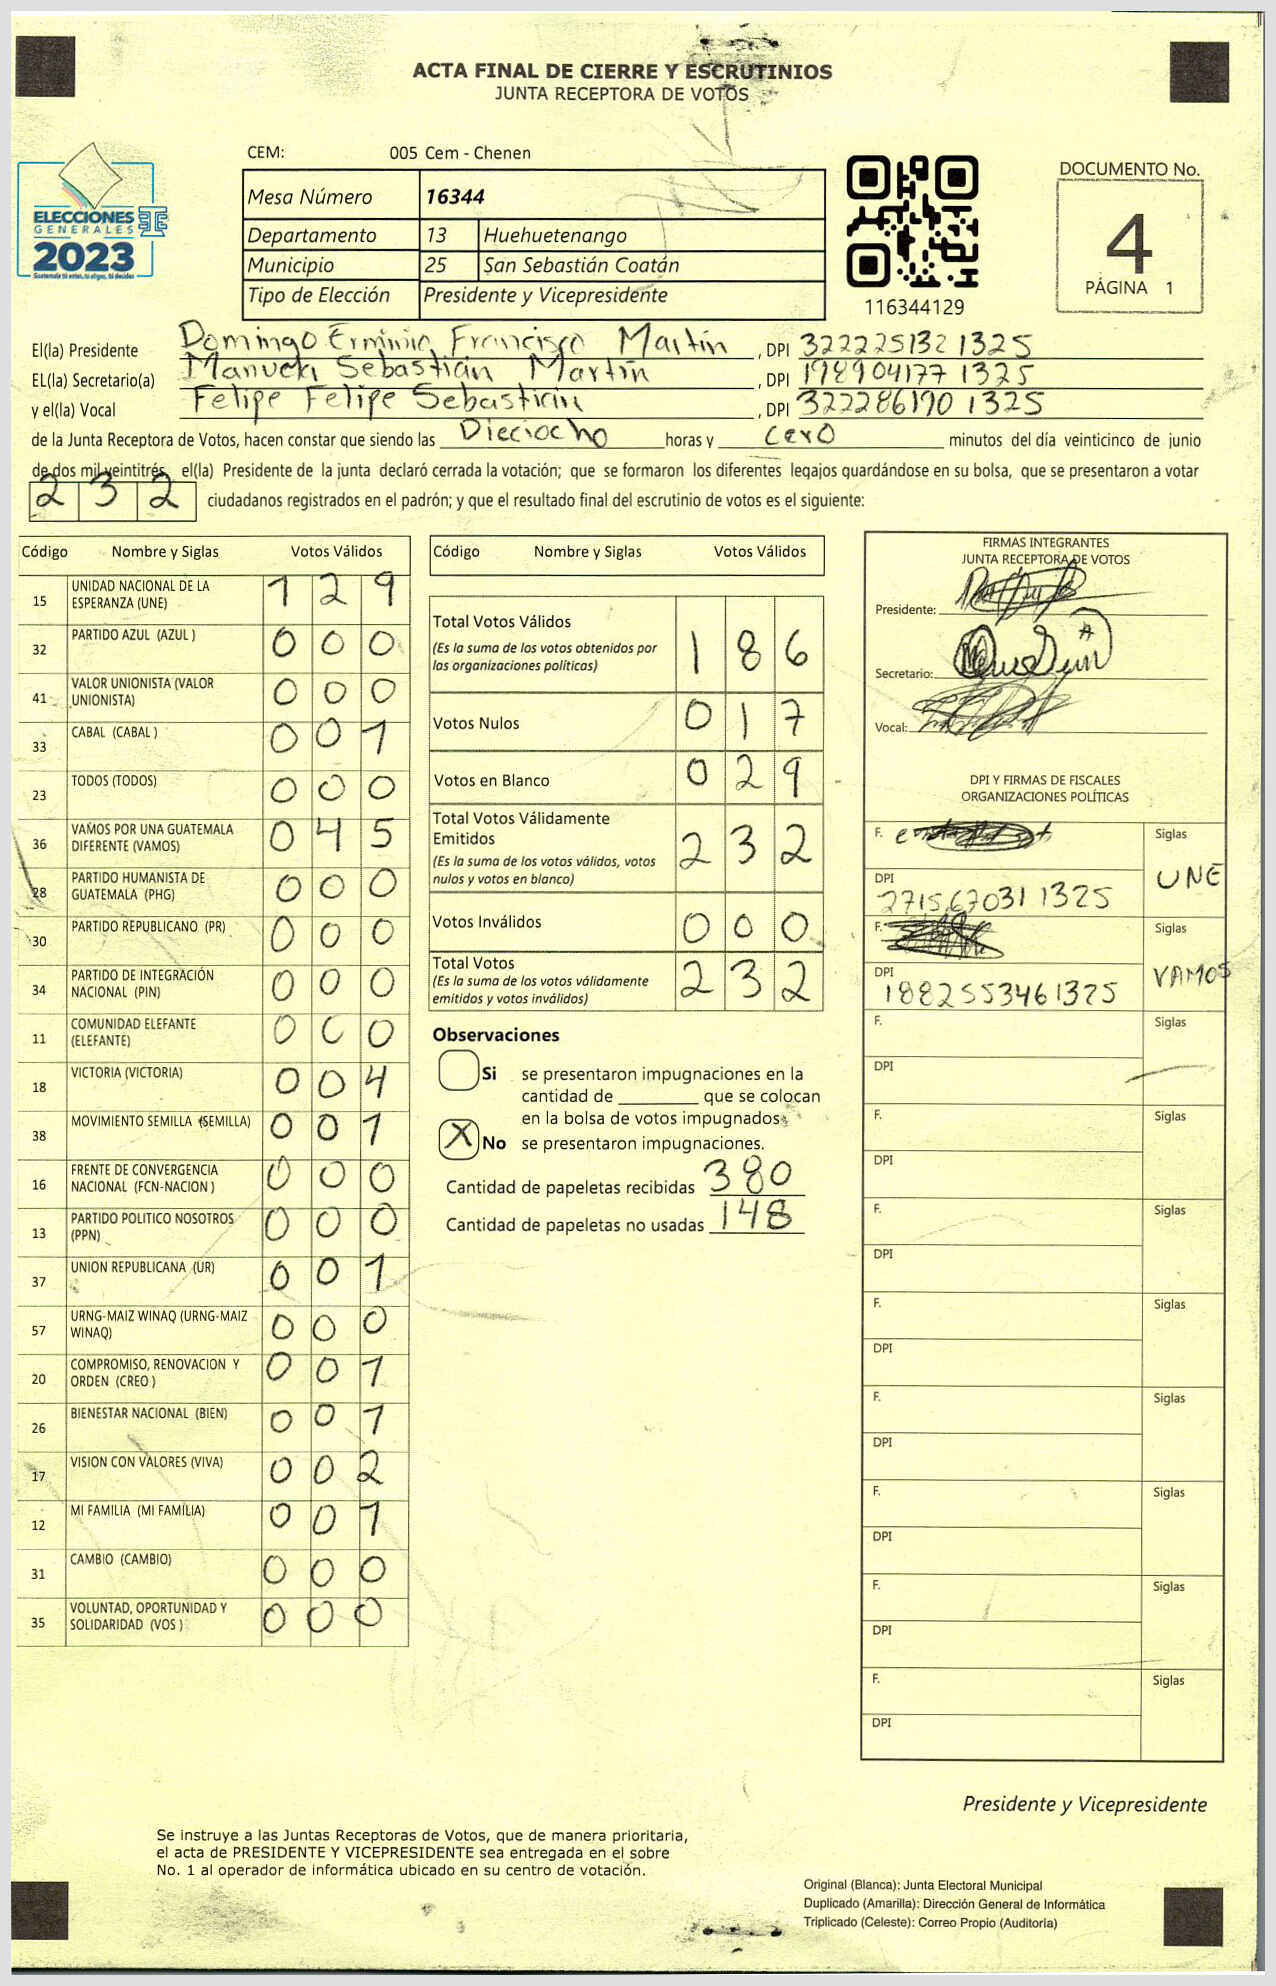 ACTA FINAL DE CIERRE Y ESCRUTINIOS
JUNTA RECEPTORA DE VOTOS
CEM: 005 Cem - Chenen
ELECCIONES
GENERALES
2023
Guatemala tú votas, tú eliges, tú decides
Mesa Número 16344
Departamento 13 Huehuetenango
Municipio 25 San Sebastián Coatán
Tipo de Elección Presidente y Vicepresidente
116344129
DOCUMENTO No.
4
PÁGINA 1
El(la) Presidente Domingo Erminio Francisco Martín , DPI 322225132 1325
EL(la) Secretario(a) Manuela Sebastián Martín , DPI 198904177 1325
y el(la) Vocal Felipe Felipe Sebastián , DPI 322286170 1325
de la Junta Receptora de Votos, hacen constar que siendo las Dieciocho horas y cero minutos del día veinticinco de junio
de dos mil veintitrés, el(la) Presidente de la junta declaró cerrada la votación; que se formaron los diferentes legajos guardándose en su bolsa, que se presentaron a votar
232 ciudadanos registrados en el padrón; y que el resultado final del escrutinio de votos es el siguiente:
Código Nombre y Siglas Votos Válidos
15 UNIDAD NACIONAL DE LA ESPERANZA (UNE) 129
32 PARTIDO AZUL (AZUL ) 000
41 VALOR UNIONISTA (VALOR UNIONISTA) 000
33 CABAL (CABAL ) 001
23 TODOS (TODOS) 000
36 VAMOS POR UNA GUATEMALA DIFERENTE (VAMOS) 045
28 PARTIDO HUMANISTA DE GUATEMALA (PHG) 000
30 PARTIDO REPUBLICANO (PR) 000
34 PARTIDO DE INTEGRACIÓN NACIONAL (PIN) 000
11 COMUNIDAD ELEFANTE (ELEFANTE) 000
18 VICTORIA (VICTORIA) 004
38 MOVIMIENTO SEMILLA (SEMILLA) 001
16 FRENTE DE CONVERGENCIA NACIONAL (FCN-NACION ) 000
13 PARTIDO POLITICO NOSOTROS (PPN) 000
37 UNION REPUBLICANA (UR) 001
57 URNG-MAIZ WINAQ (URNG-MAIZ WINAQ) 000
20 COMPROMISO, RENOVACION Y ORDEN (CREO ) 001
26 BIENESTAR NACIONAL (BIEN) 001
17 VISION CON VALORES (VIVA) 002
12 MI FAMILIA (MI FAMILIA) 001
31 CAMBIO (CAMBIO) 000
35 VOLUNTAD, OPORTUNIDAD Y SOLIDARIDAD (VOS ) 000
Código Nombre y Siglas Votos Válidos
Total Votos Válidos 186
(Es la suma de los votos obtenidos por
las organizaciones políticas)
Votos Nulos 017
Votos en Blanco 029
Total Votos Válidamente
Emitidos 232
(Es la suma de los votos válidos, votos
nulos y votos en blanco)
Votos Inválidos 000
Total Votos 232
(Es la suma de los votos válidamente
emitidos y votos inválidos)
Observaciones
Si se presentaron impugnaciones en la
cantidad de ________ que se colocan
en la bolsa de votos impugnados.
X No se presentaron impugnaciones.
Cantidad de papeletas recibidas 380
Cantidad de papeletas no usadas 148
FIRMAS INTEGRANTES
JUNTA RECEPTORA DE VOTOS
Presidente:
Secretario:
Vocal:
DPI Y FIRMAS DE FISCALES
ORGANIZACIONES POLÍTICAS
F. Siglas
UNE
DPI
2715670311325
F. Siglas
VAMOS
DPI
1882553461325
F. Siglas
DPI
F. Siglas
DPI
F. Siglas
DPI
F. Siglas
DPI
F. Siglas
DPI
F. Siglas
DPI
F. Siglas
DPI
F. Siglas
DPI
Presidente y Vicepresidente
Se instruye a las Juntas Receptoras de Votos, que de manera prioritaria,
el acta de PRESIDENTE Y VICEPRESIDENTE sea entregada en el sobre
No. 1 al operador de informática ubicado en su centro de votación.
Original (Blanca): Junta Electoral Municipal
Duplicado (Amarilla): Dirección General de Informática
Triplicado (Celeste): Correo Propio (Auditoría)